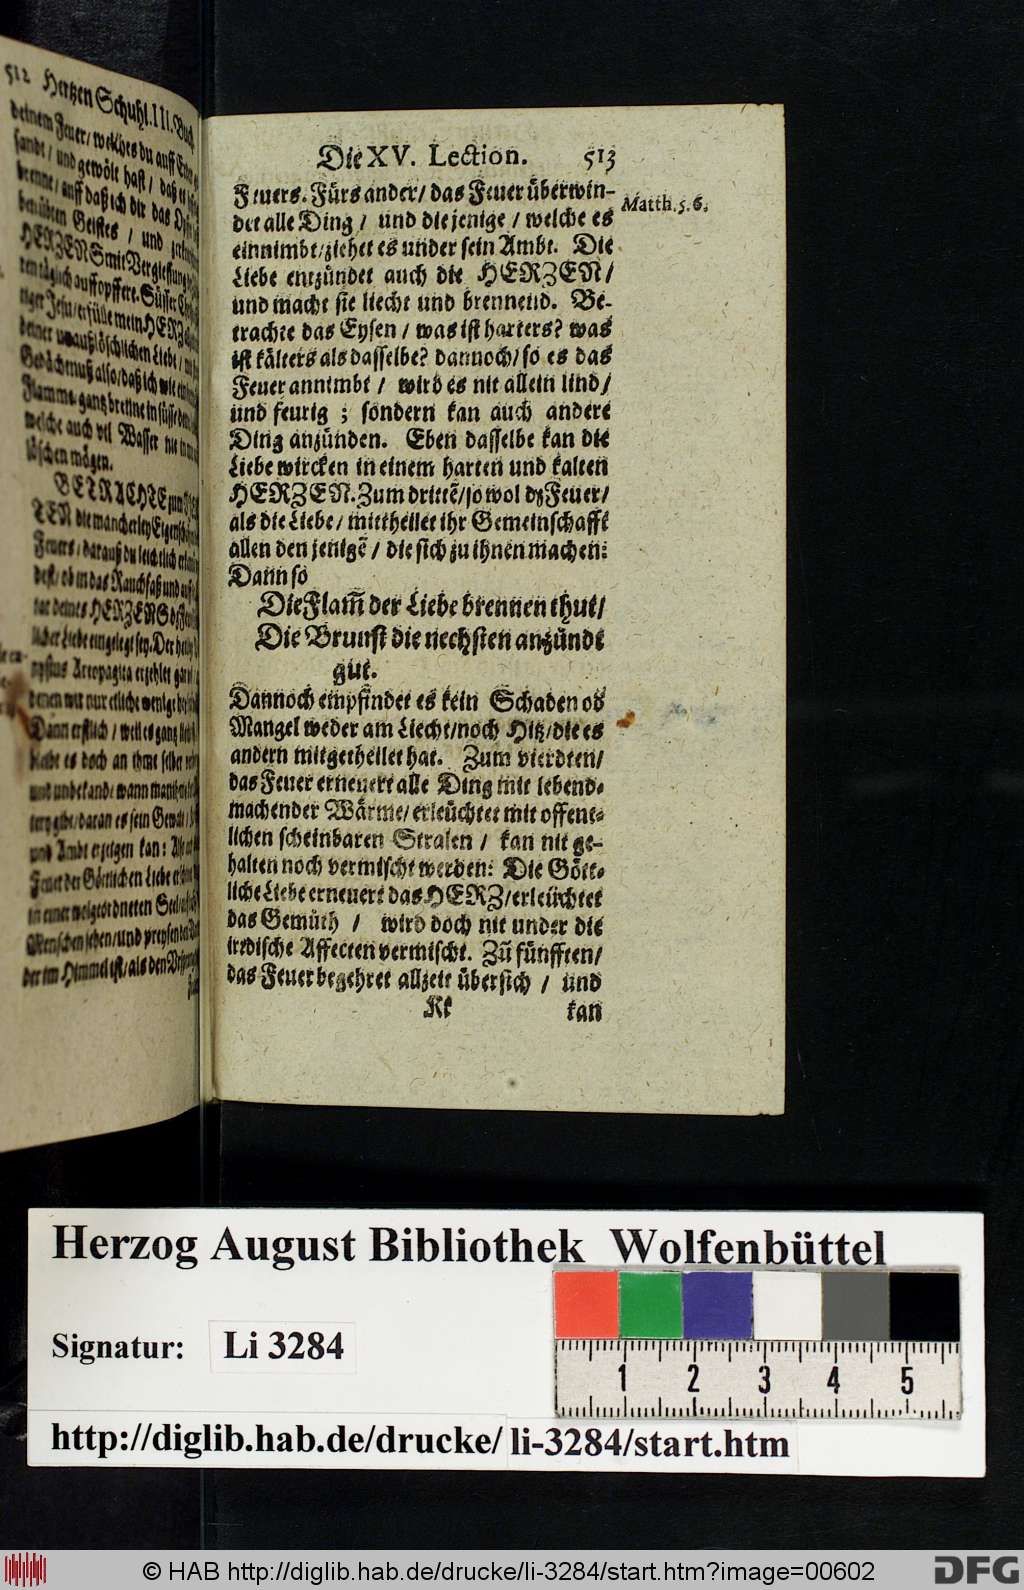 512 Hertzen Schuhl. III. Buch
deinem Feuer / welches du auff Erden
sandt / und gewölt hast / daß es
brenne / auff daß ich dir das
Geistes / und
HERZENS mit Vergiessung
täglich auffopffere. Süsser
tiger Jesu / erfülle mein HERZ
deiner unaußlöschlichen Liebe /
Gedächtnuß also / daß ich wie ein
Flamme gantz brenne in süsse
welche auch vil Wasser nie
löschen mögen.
BETRACHTE zum
TEN die mancherley Eigenschafft
Feuers / darauß du leichtlich
dest / ob in das Rauchfaß und
tar deines HERZENS dz
licher Liebe eingelegt sey. Der
nysius Areopagita erzehlet
denen wir nur etliche wenige
Dann erstlich / weil es gantz
bleibt es doch an ihme selber
und unbekand / wann man ihme
tery gibt / daran es sein Gewalt /
und Ambt erzeigen kan: Also
Feuer der Göttlichen Liebe
in einer wolgeordneten Seel /
Menschen sehen / und preysen den
der im Himmel ist / als den
Die XV. Lection. 513
Feuers. Fürs ander / das Feuer überwin-
det alle Ding / und die jenige / welche es
einnimbt / ziehet es under sein Ambt. Die
Liebe entzündet auch die HERZEN /
und macht sie liecht und brennend. Be-
trachte das Eysen / was ist harters? was
ist kälters als dasselbe? dannoch / so es das
Feuer annimbt / wird es nit allein lind /
und feurig ; sondern kan auch andere
Ding anzünden. Eben dasselbe kan die
Liebe wircken in einem harten und kalten
HERZEN. Zum drittē / so wol dz Feuer /
als die Liebe / mittheilet ihr Gemeinschafft
allen den jenigē / die sich zu ihnen machen:
Dann so
Die Flam̄ der Liebe brennen thut /
Die Brunst die nechsten anzündt
gut.
Dannoch empfindet es kein Schaden od
Mangel weder am Liecht / noch Hitz / die es
andern mitgetheilet hat. Zum vierdten /
das Feuer erneuert alle Ding mit lebend-
machender Wärme / erleüchtet mit offent-
lichen scheinbaren Stralen / kan nit ge-
halten noch vermischt werden: Die Gött-
liche Liebe erneuert das HERZ / erleüchtet
das Gemüth / wird doch nit under die
irrdische Affecten vermischt. Zū fünfften /
das Feuer begehret allzeit übersich / und
Kk kan
Matth. 5. 6.
Herzog August Bibliothek Wolfenbüttel
Signatur: Li 3284
1 2 3 4 5
http://diglib.hab.de/drucke/li-3284/start.htm
© HAB http://diglib.hab.de/drucke/li-3284/start.htm?image=00602
DFG